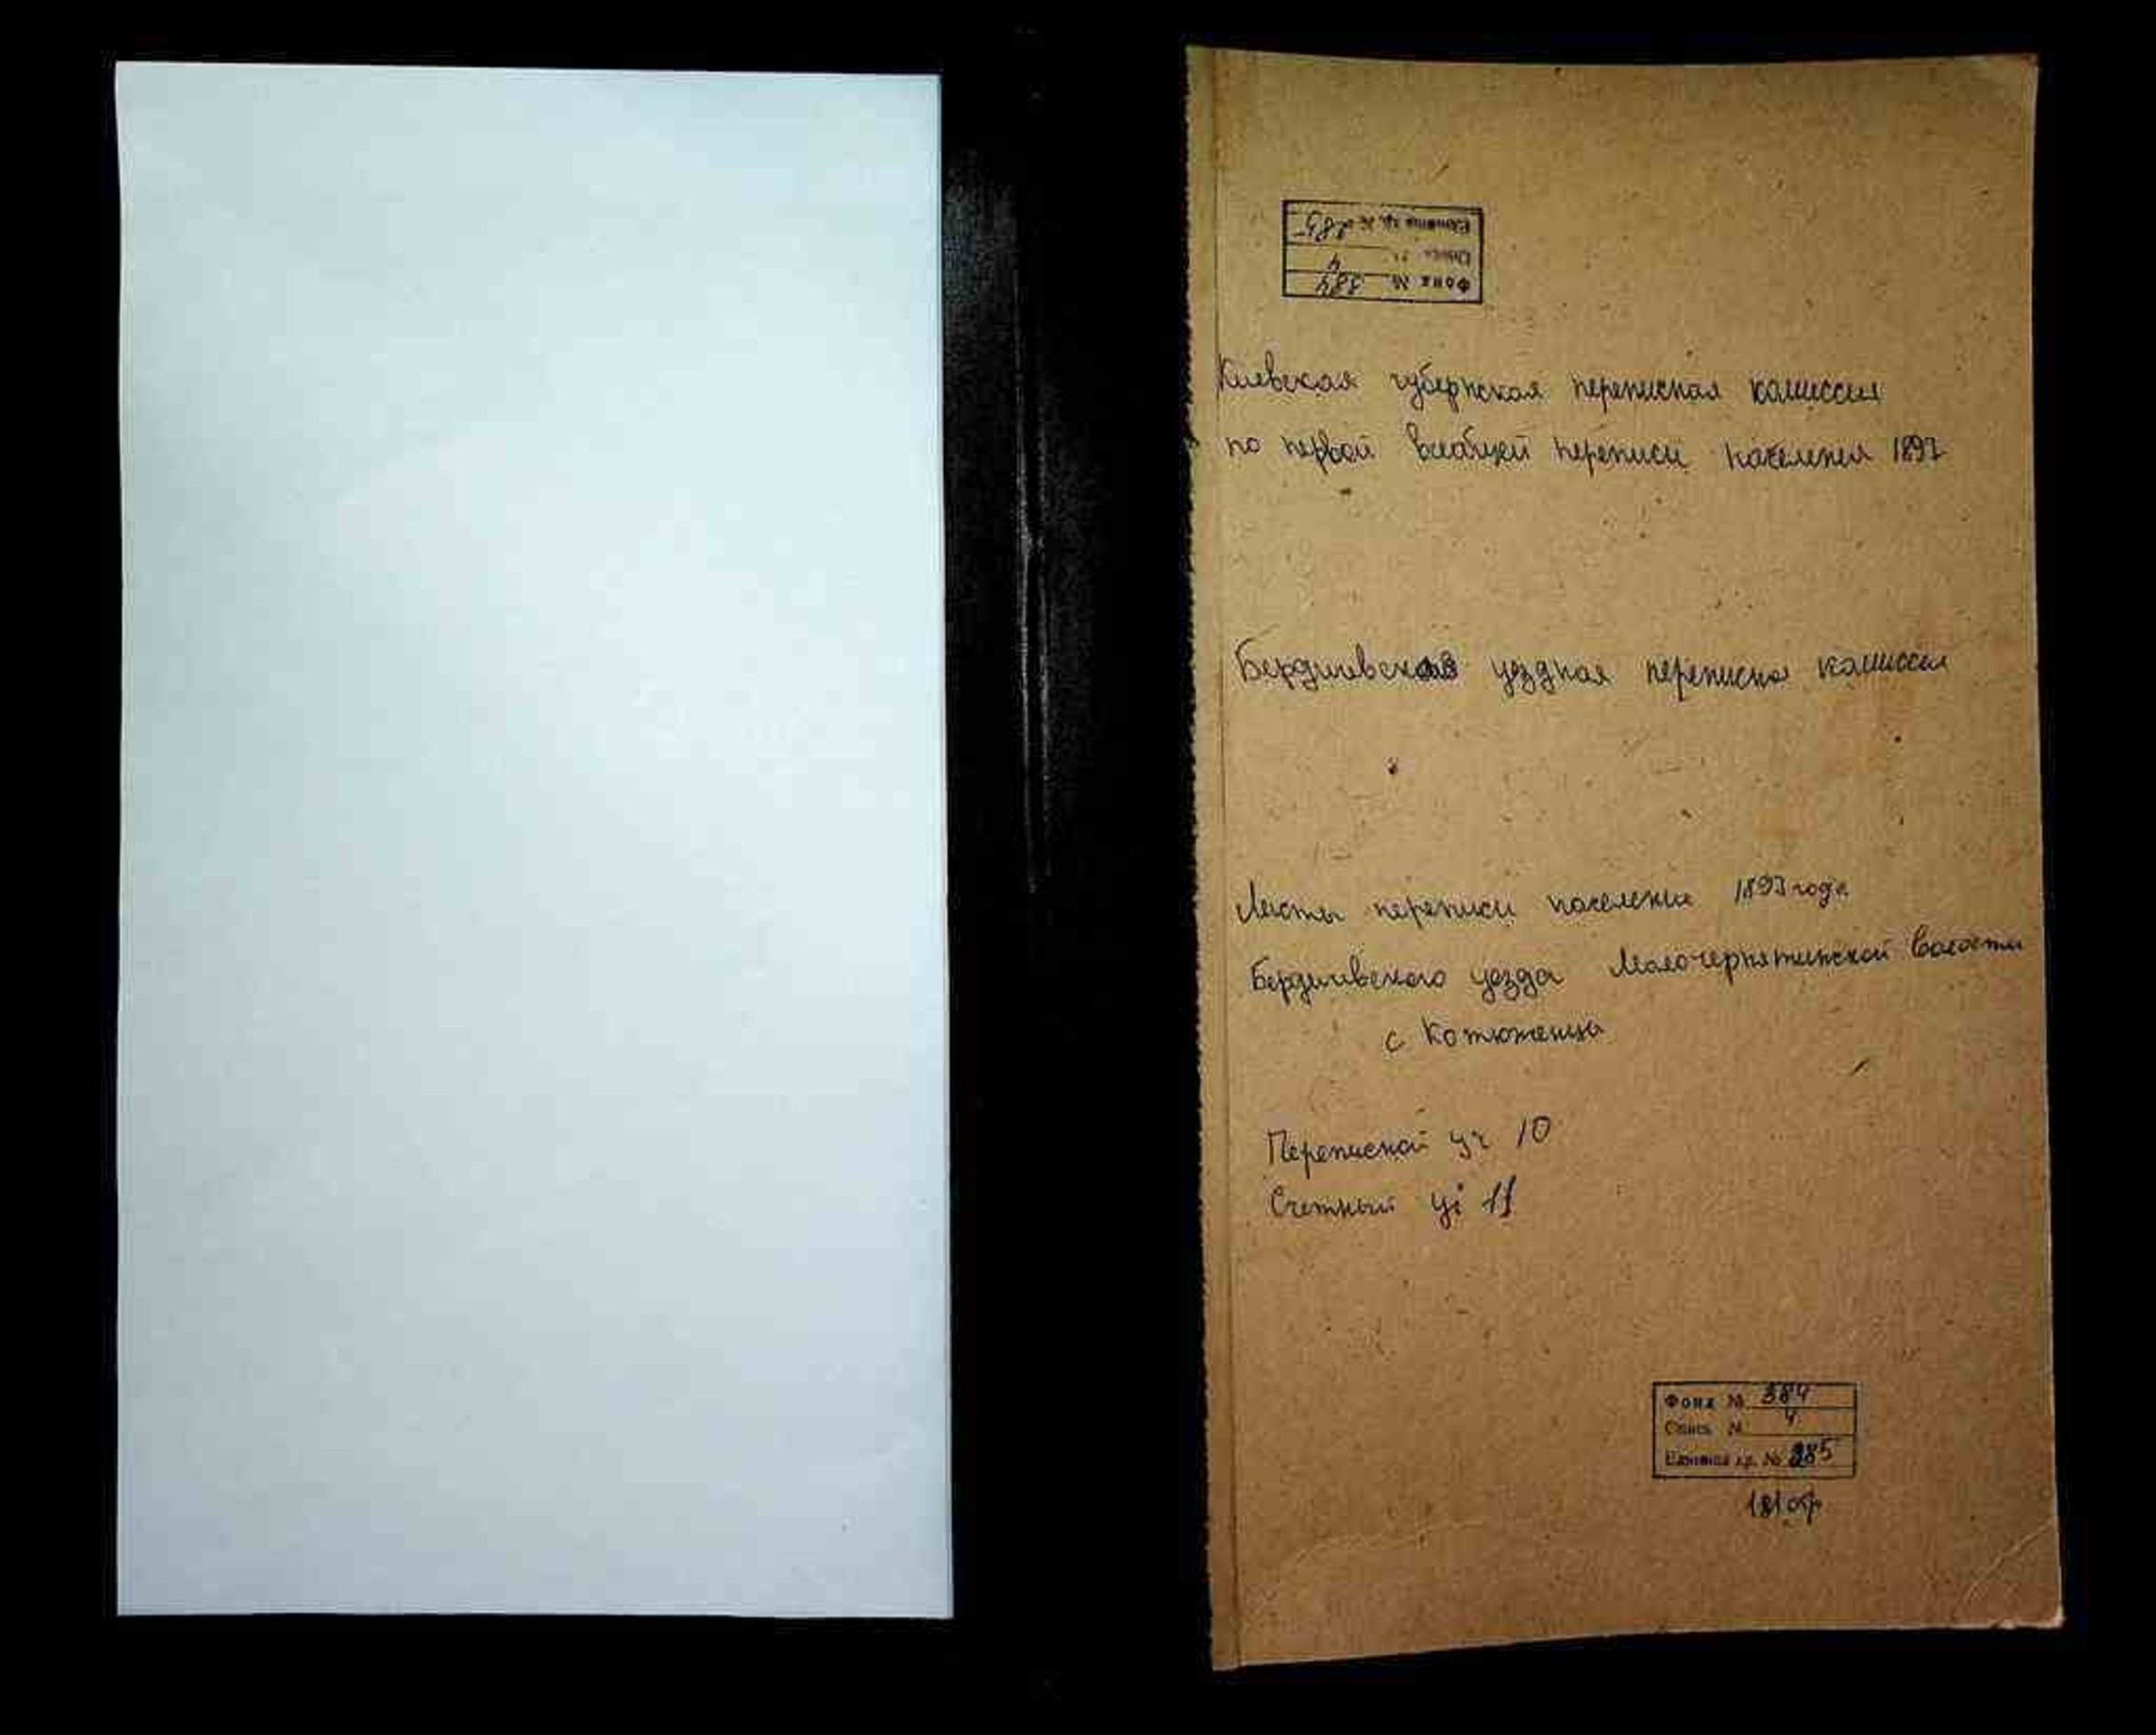 Единица хр. № 285
Опись № 4
Фонд № 384
Киевская губернская переписная комиссия
по первой всеобщей переписи населения 1897
Бердичевская уездная переписная комиссия
Листы переписи населения 1897 года
Бердичевского уезда Малочернятинской волости
с Котюженцы
Переписной уч 10
Счетный уч 11
Фонд № 384
Опись № 4
Единица хр. № 285
181 обр